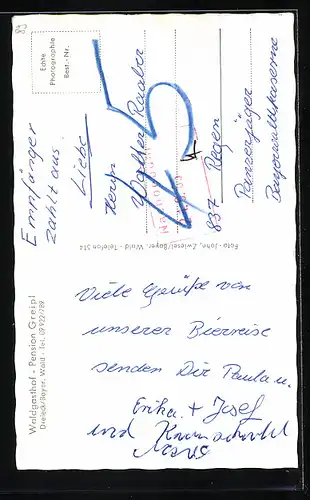 Waldgasthof - Pension Greipl
Dreieck/Bayer. Wald - Tel. 09922/789
Viele Grüße von
unserer Bierreise
senden Dir Paula u.
Erika + Josef
und
Foto - John, Zwiesel/Bayer. Wald - Telefon 514
Echte
Photographie
Best.-Nr.
Empfänger
zahlt aus
Liebe
Herrn
Walter
45
837 Regen
Panzerjäger
Bayerwaldkaserne